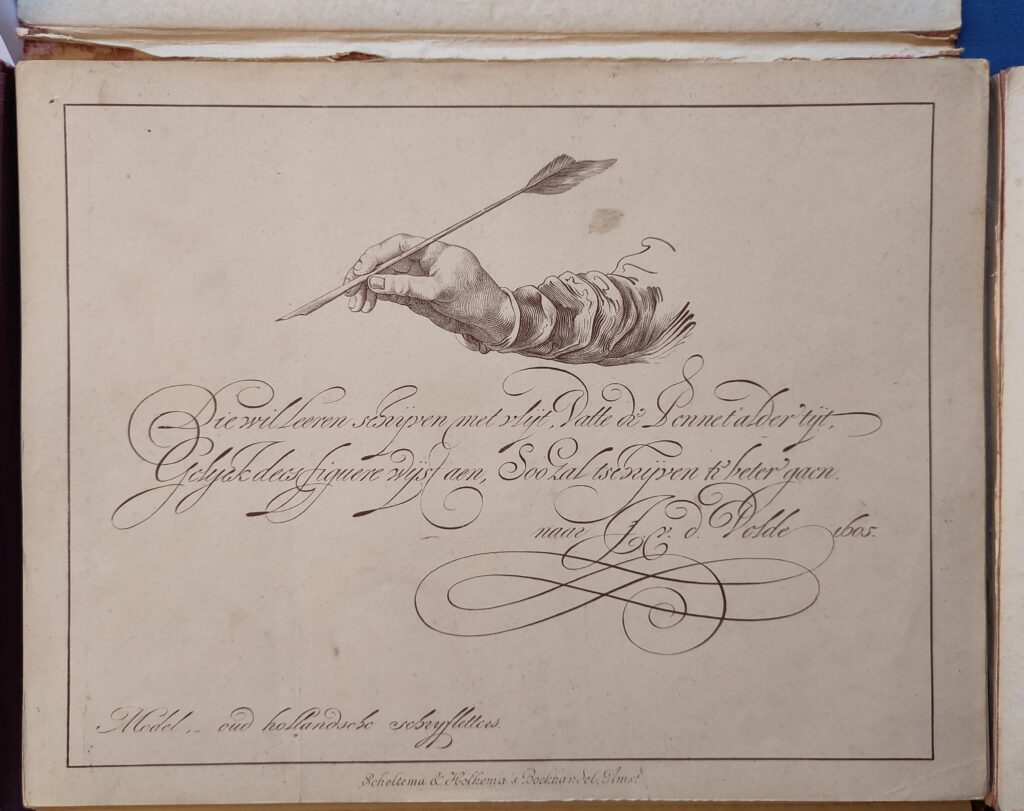 Die wil leeren schrijven met vlijt, Vatte de Penne t'alder tijt,
Gelyck dees figuere wijst aen, Soo zal tschrijven te beter gaen.
naar J. v. d. Velde 1605.
Model,- oud hollandsche schryfletters.
Scheltema & Holkema's Boekhandel, Amst.